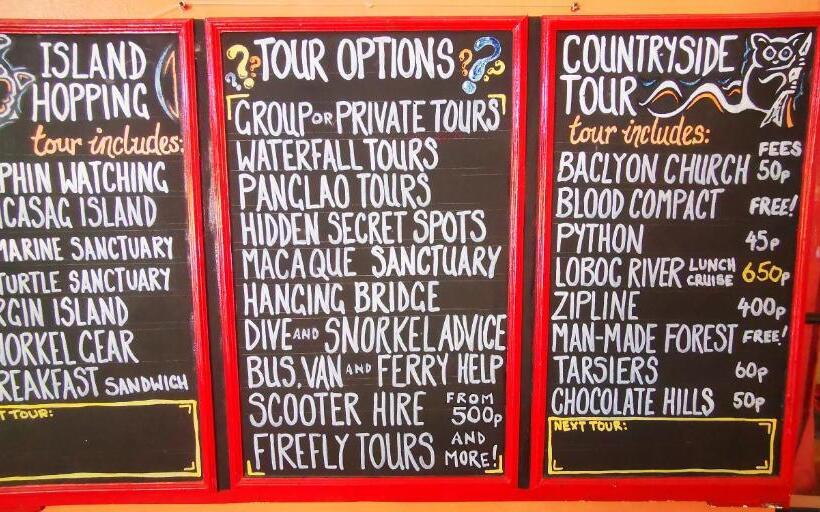 ISLAND
HOPPING
tour includes:
PHIN WATCHING
ICASAG ISLAND
MARINE SANCTUARY
TURTLE SANCTUARY
RGIN ISLAND
NORKEL GEAR
REAKFAST SANDWICH
T TOUR:
??TOUR OPTIONS??
GROUP OR PRIVATE TOURS
WATERFALL TOURS
PANGLAO TOURS
HIDDEN SECRET SPOTS
MACAQUE SANCTUARY
HANGING BRIDGE
DIVE AND SNORKEL ADVICE
BUS, VAN AND FERRY HELP
SCOOTER HIRE FROM 500p
FIREFLY TOURS AND MORE!
COUNTRYSIDE
TOUR
tour includes:
FEES
BACLYON CHURCH 50p
BLOOD COMPACT FREE!
PYTHON 45p
LOBOC RIVER LUNCH CRUISE 650p
ZIPLINE 400p
MAN-MADE FOREST FREE!
TARSIERS 60p
CHOCOLATE HILLS 50p
NEXT TOUR: